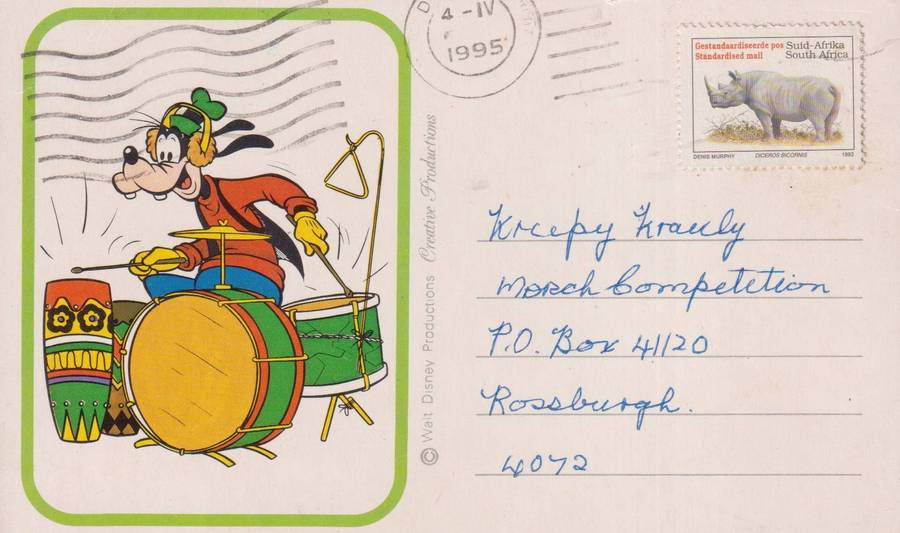 4 -IV
1995
Gestandaardiseerde pos
Standardised mail
Suid-Afrika
South Africa
DENIS MURPHY
DICEROS BICORNIS
1993
© Walt Disney Productions Creative Productions
Kreepy Krauly
March Competetion
P.O. Box 41120
Rossburgh.
4072